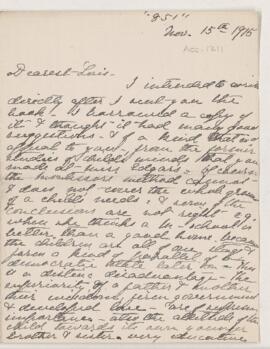 "851"
Nov. 15th 1915
ACC-1311
Dearest Lois -
I intended to write
directly after I sent you the
book - I borrowed a copy of
it & thought it had many good
suggestions - & of a kind that wd
appeal to you - from the former
studies of child's minds that you
made at Miss Edgar's. Of course
the Montessori method
& does not cover the whole ground
of a child's needs, & some of the
conclusions are not right - eg.
when she thinks a - school is
better than a good home, because
the children are all of one age &
form a kind of parallel of the
democratic state later on - This
is a distinct disadvantage - the
superiority of a father & mother
their wisdom, firm government
& developed love - are of supreme
importance - also the attitude of the
child towards its own younger
brother & sister - very educative